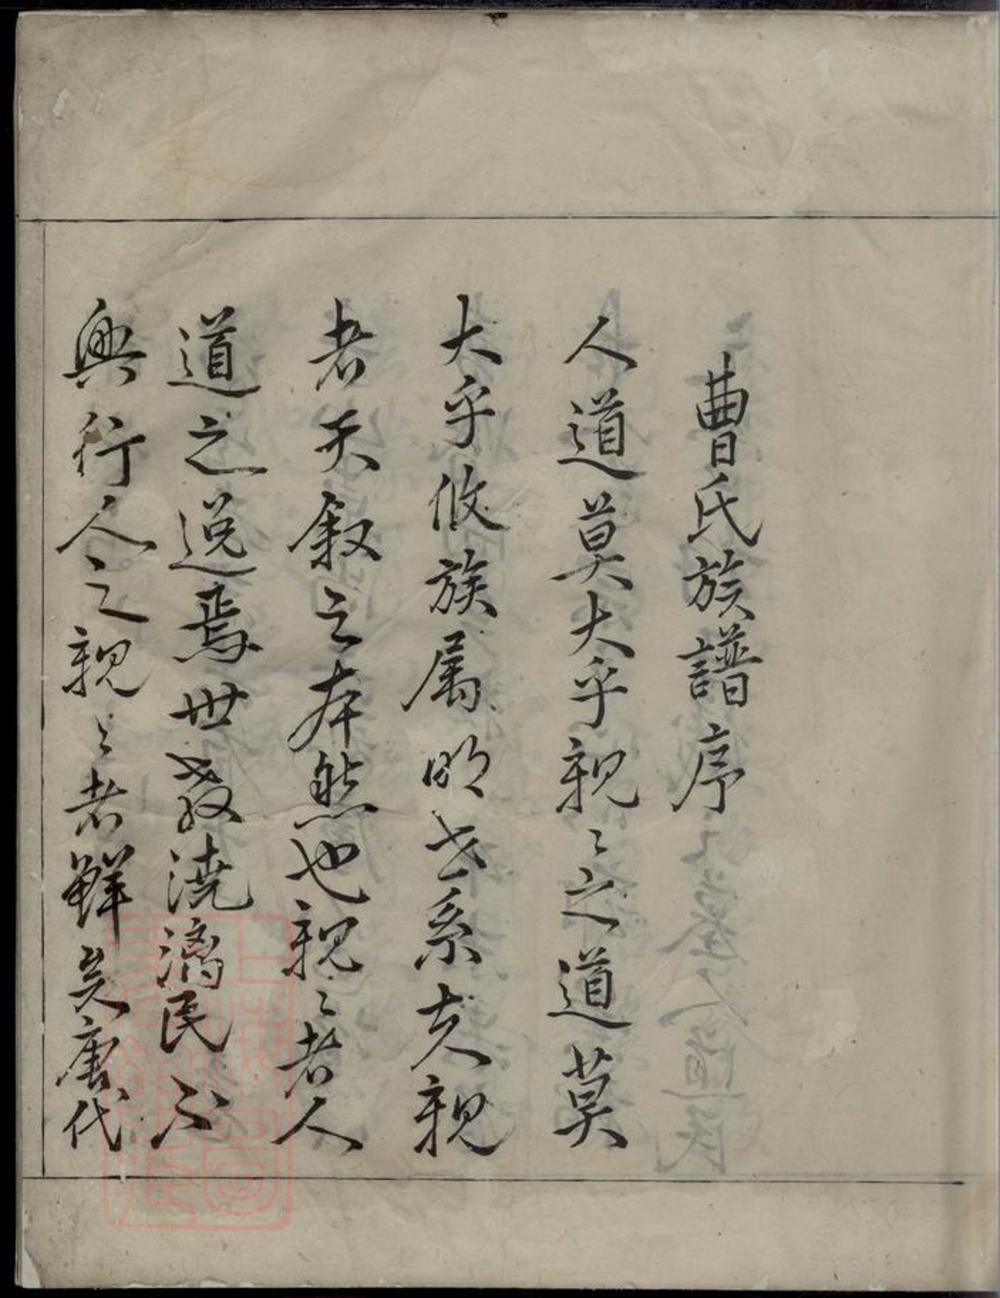 曹氏族譜序
人道莫大乎親〻之道莫
大乎收族属明世系夫親
者天叙之本然也親〻者人
道之説焉世教澆漓民不
興行人之親〻者鮮矣唐代